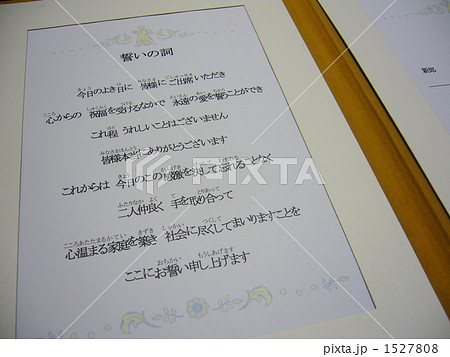 誓いの詞
今日のよき日に 皆様に ご出席 いただき
心からの 祝福を受けるなかで 永遠の愛を誓うことができ
これ程 うれしいことはございません
皆様本当にありがとうございます
これからは 今日のこの感激を決して忘れることなく
二人仲良く 手を取り合って
心温まる家庭を築き 社会に尽くしてまいりますことを
ここにお誓い申し上げます
新郎
pixta.jp - 1527808